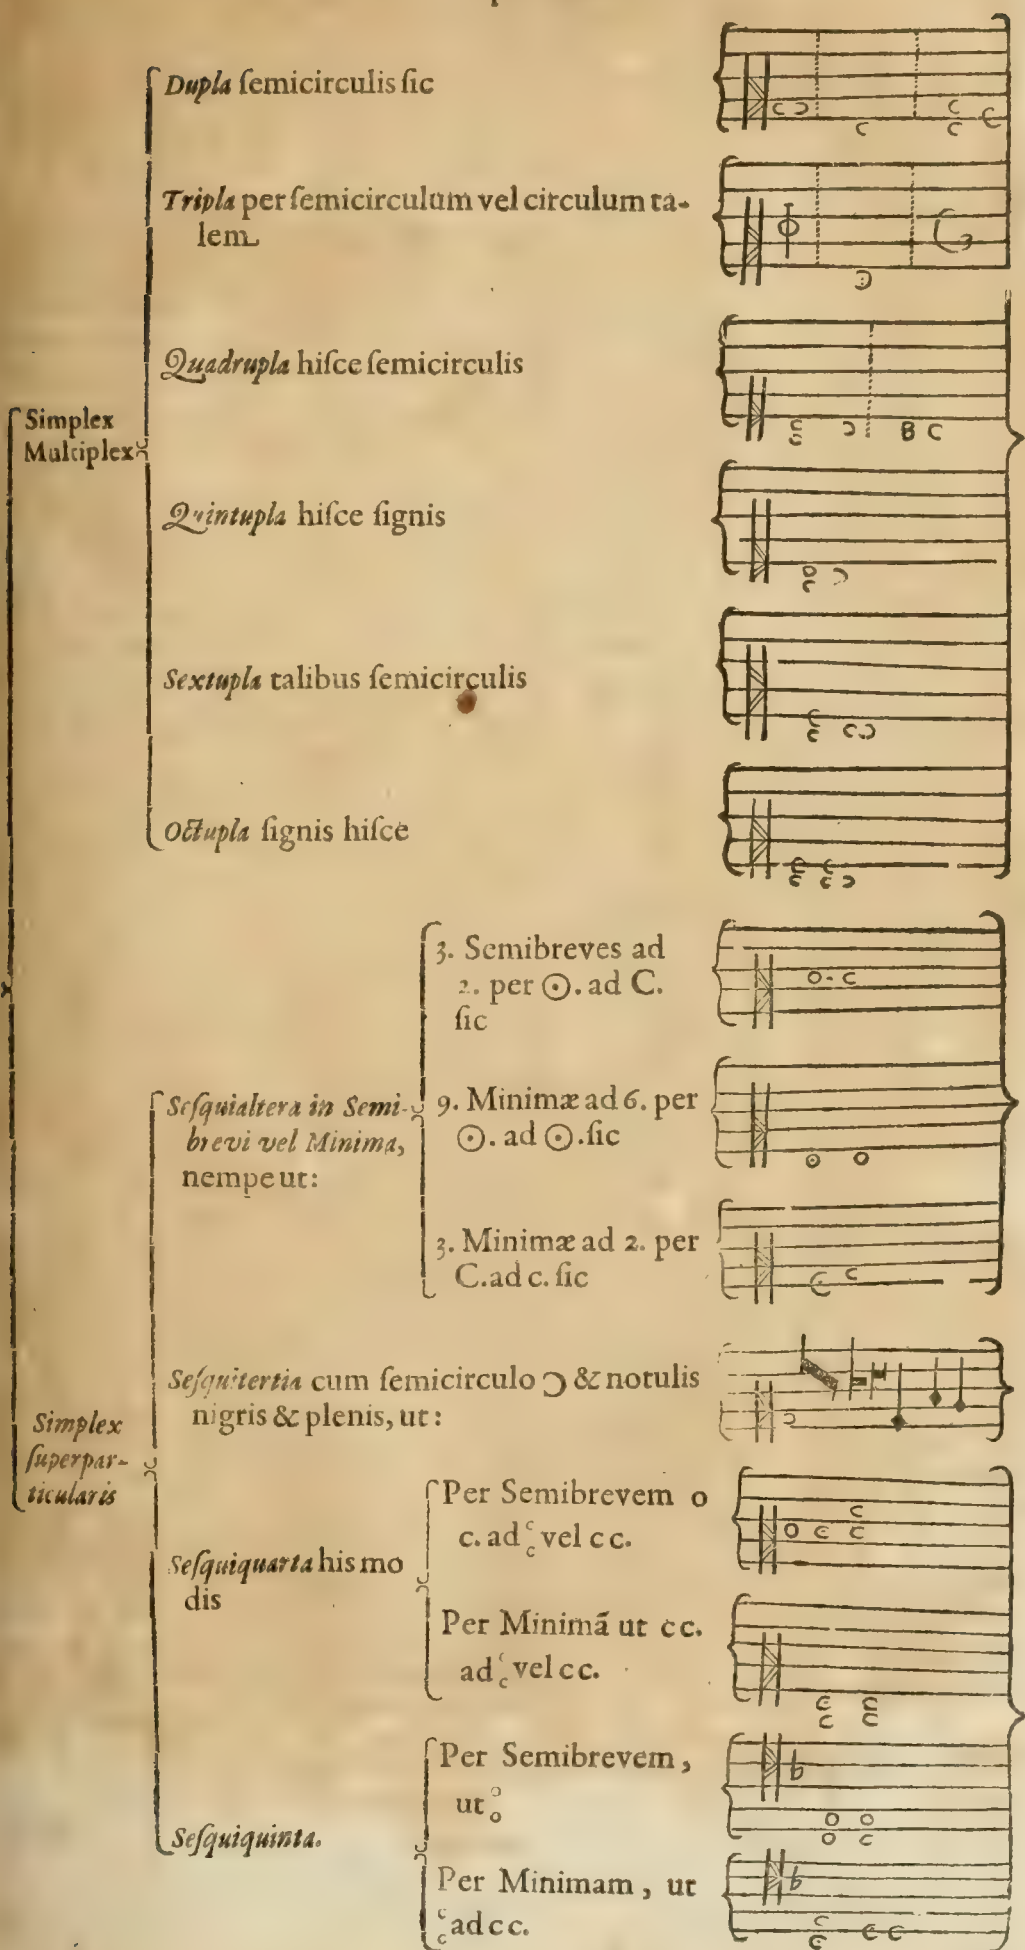 Dupla ſemicirculis ſic
Tripla per ſemicirculum vel circulum ta-
lem
Quadrupla hiſce ſemicirculis
Simplex
Multiplex
Quintupla hiſce ſignis
Sextupla talibus ſemicirculis
Octupla ſignis hiſce
3. Semibreves ad
2. per ⊙. ad C.
ſic
Seſquialtera in Semi-
brevi vel Minima,
nempe ut:
9. Minimæ ad 6. per
⊙. ad ⊙. ſic
3. Minimæ ad 2. per
C. ad c. ſic
Simplex
ſuperpar-
ticularis
Seſquitertia cum ſemicirculo Ɔ & notulis
nigris & plenis, ut:
Seſquiquarta his mo
dis
Per Semibrevem o
c. ad c c vel c c.
Per Minimã ut c c.
ad c c vel c c.
Seſquiquinta.
Per Semibrevem,
ut o o
Per Minimam, ut
c c ad c c.